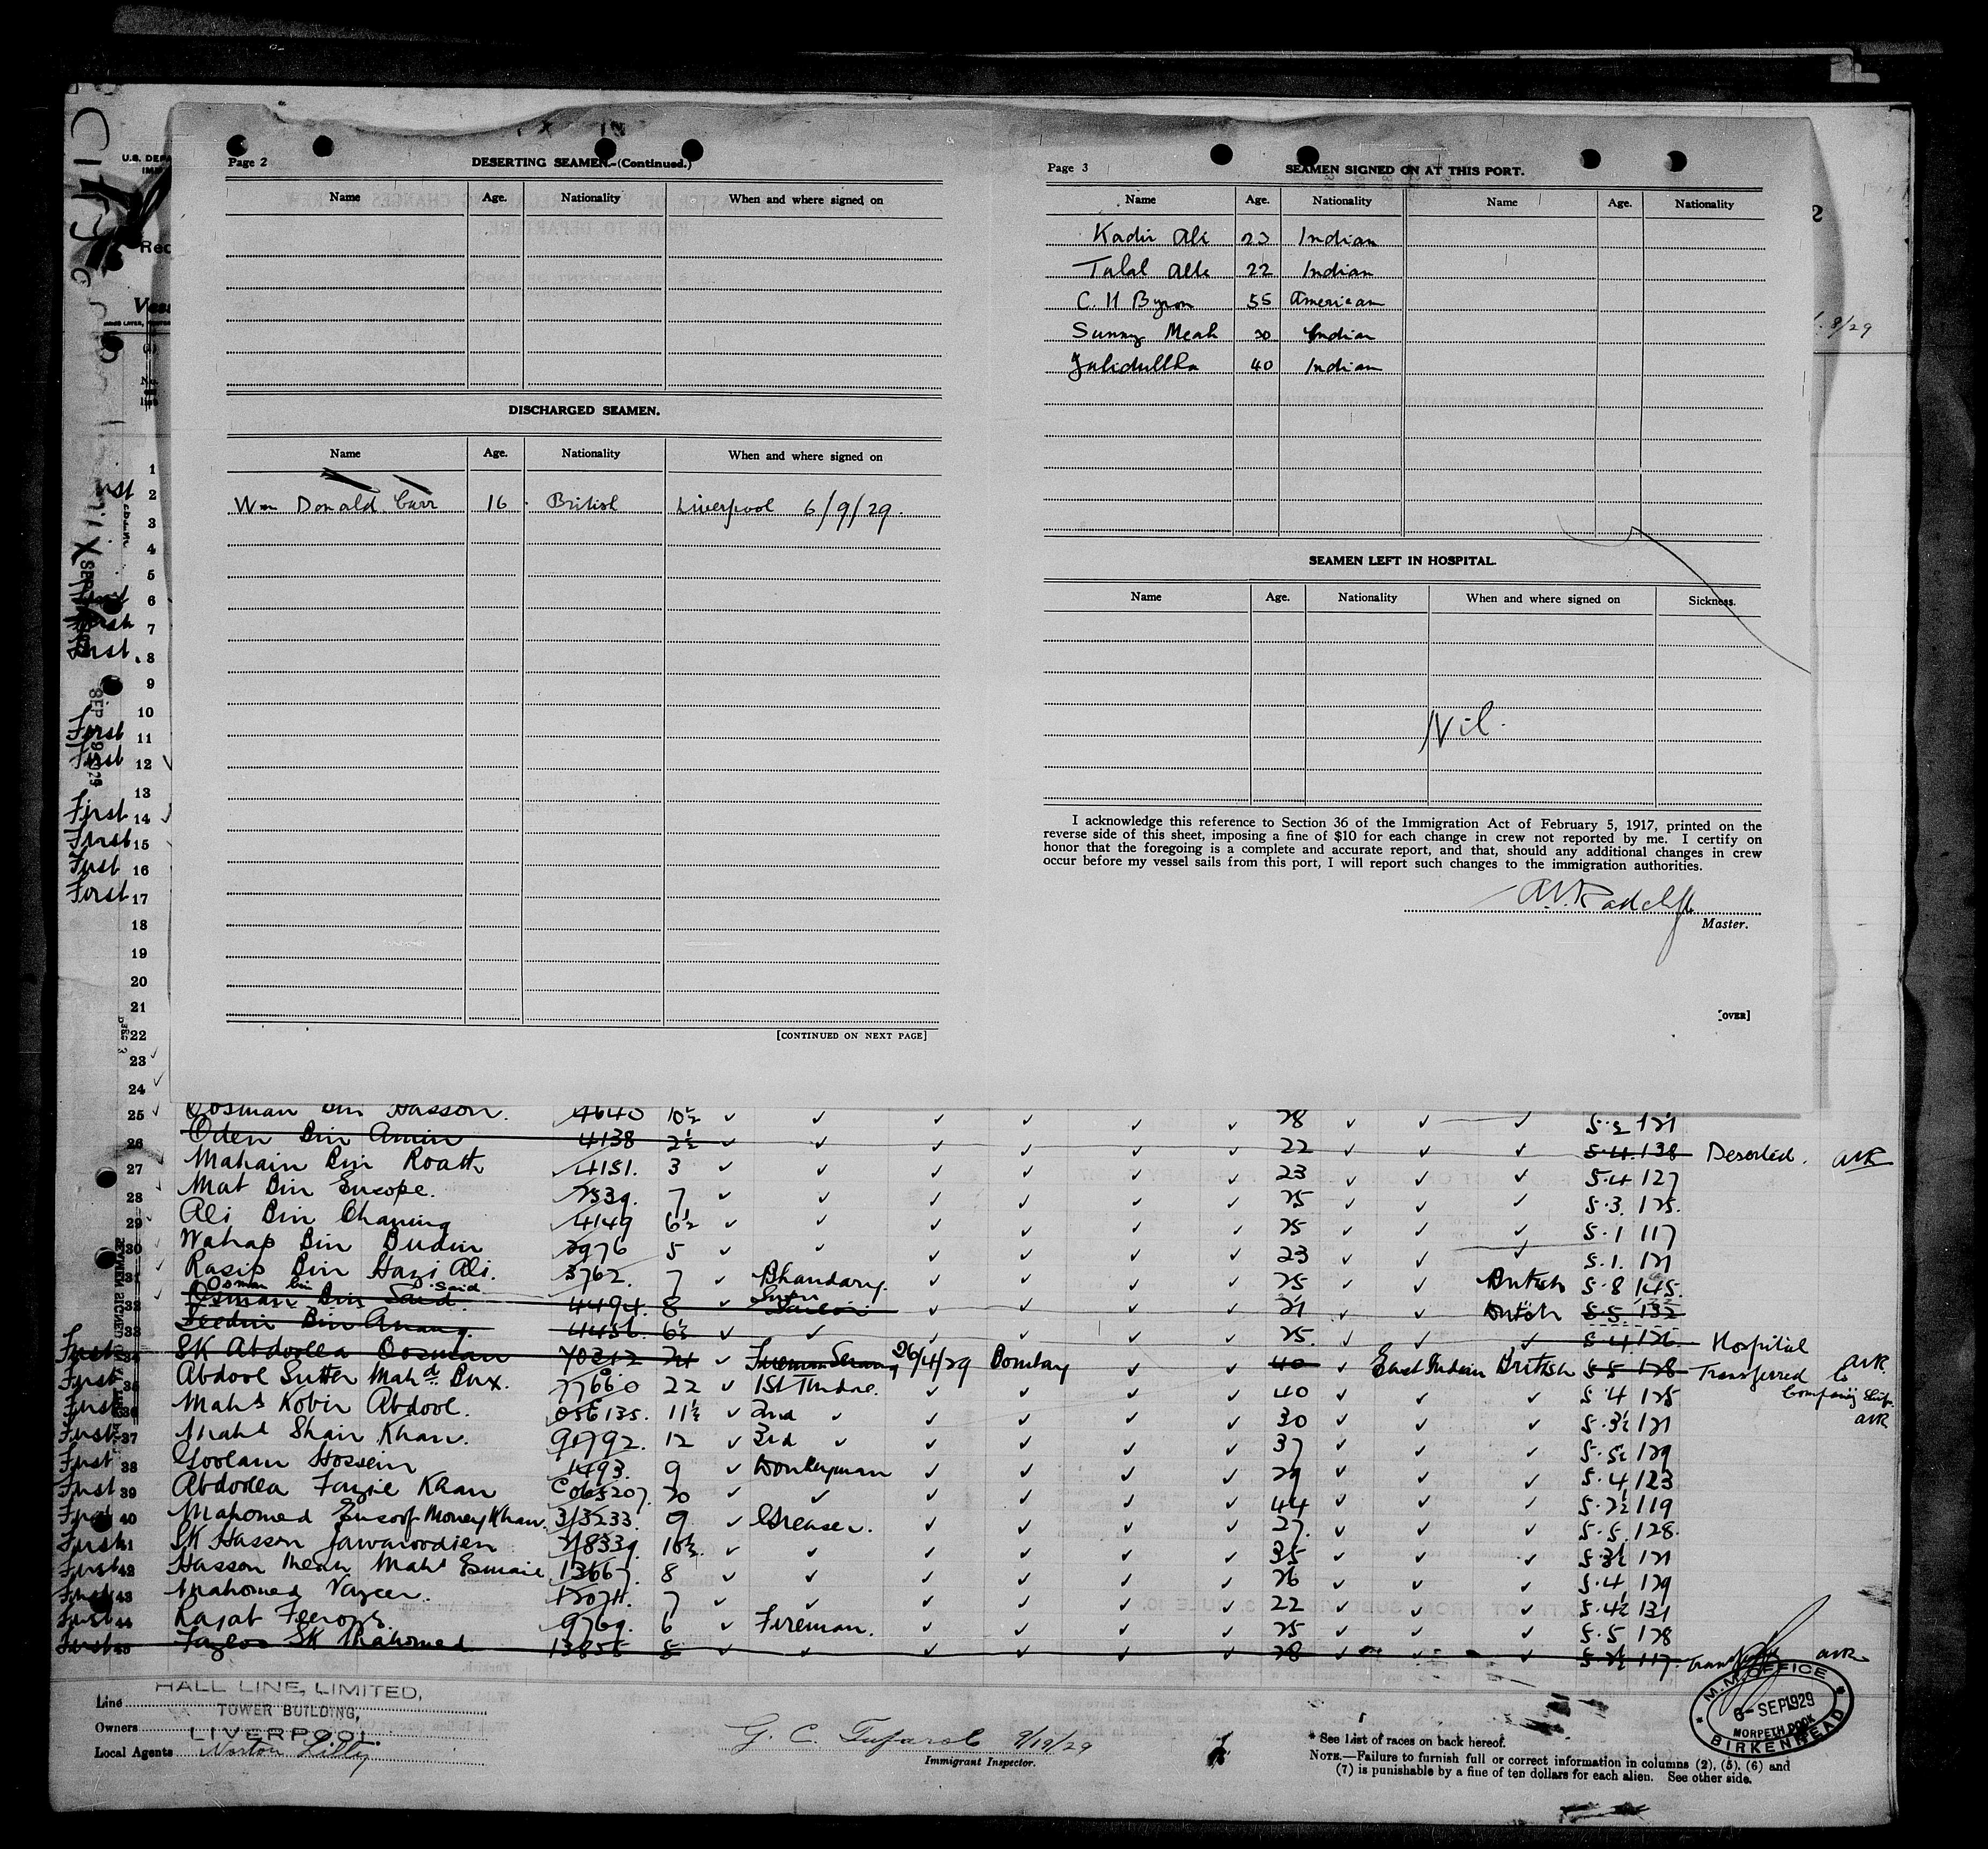 Page 2
DESERTING SEAMEN.-(Continued.)
Name Age. Nationality When and where signed on
DISCHARGED SEAMEN.
Name Age. Nationality When and where signed on
Wm Donald Carr 16 British Liverpool 6/9/29.
[CONTINUED ON NEXT PAGE]
Page 3
SEAMEN SIGNED ON AT THIS PORT.
Name Age. Nationality Name Age. Nationality
Kadir Ali 23 Indian
Talal Alle 22 Indian
C. H Byron 55 American
Sunny Meah 30 Indian
40 Indian
SEAMEN LEFT IN HOSPITAL.
Name Age. Nationality When and where signed on Sickness.
Nil.
I acknowledge this reference to Section 36 of the Immigration Act of February 5, 1917, printed on the
reverse side of this sheet, imposing a fine of $10 for each change in crew not reported by me. I certify on
honor that the foregoing is a complete and accurate report, and that, should any additional changes in crew
occur before my vessel sails from this port, I will report such changes to the immigration authorities.
A.V. Radcliffe
Master.
[OVER]
1
2
3
4
5
6
7
8
9
10
First 11
First 12
13
First 14
First 15
First 16
First 17
18
19
20
21
22
23
24
25 Oosman Bin Hasson. 4640 10½ ✓ ✓ ✓ ✓ ✓ ✓ 28 ✓ ✓ ✓ 5.2 121
26 Oden Bin Amin 4138 2½ ✓ ✓ ✓ ✓ ✓ ✓ 22 ✓ ✓ ✓ 5.4.138 Deserted. AVR
27 Mahain Bin Roatt 4151. 3 ✓ ✓ ✓ ✓ ✓ ✓ 23 ✓ ✓ ✓ 5.4 127
28 Mat Bin Eusope. 2539. 7 ✓ ✓ ✓ ✓ ✓ ✓ 25 ✓ ✓ ✓ 5.3. 125.
29 Ali Bin Chaning 4149 6½ ✓ ✓ ✓ ✓ ✓ ✓ 25 ✓ ✓ ✓ 5.1 117
30 Wahap Bin Budin 2976 5 ✓ ✓ ✓ ✓ ✓ 23 ✓ ✓ ✓ 5.1. 121
31 Rasip Bin Hazi Ali. 3762. 7 ✓ Bhandary. ✓ ✓ ✓ ✓ 25 ✓ ✓ British 5.8 145.
Osman bin Said
32 Osman Bin Said. 4494. 8 ✓ ✓ ✓ ✓ ✓ 21 ✓ ✓ 5.5. 132
33 Bin Anang. 4456. 6½ ✓ ✓ ✓ ✓ ✓ ✓ 25. ✓ ✓ ✓ 5.4.126. Hospital AVR
First 34 SK Abdoolla Oosman 70212 24 ✓ Fireman Serang 26/4/29 Bombay ✓ ✓ 40 ✓ East Indian British 5.5 128 Transferred to
Company Ship. AVR
First 35 Abdool Sutter Mahd Bux. 77660 22 ✓ 1st Tindal. ✓ ✓ ✓ ✓ 40 ✓ ✓ ✓ 5.4 125
First 36 Mahd Kobir Abdool. 056135. 11½ ✓ 2nd ✓ ✓ ✓ ✓ ✓ 30 ✓ ✓ ✓ 5.3½ 121
First 37 Mahd Shair Khan. 90792. 12 ✓ 3rd ✓ ✓ ✓ ✓ ✓ 37 ✓ ✓ ✓ 5.5½ 129
First 38 Goolam Hossein 1493. 9 ✓ Donkeyman ✓ ✓ ✓ ✓ 29 ✓ ✓ ✓ 5.4 123
First 39 Abdolla Fazie Khan C065207. 20 ✓ ✓ ✓ ✓ ✓ ✓ 44 ✓ ✓ ✓ 5.2½ 119
First 40 Mahomed Eusoof Money Khan. 313233. 9 ✓ Greaser. ✓ ✓ ✓ ✓ 27. ✓ ✓ ✓ 5.5. 128.
First 41 SK Hasson Jawaroodien 78339. 16½ ✓ ✓ ✓ ✓ ✓ ✓ 35 ✓ ✓ ✓ 5.3½ 121
First 42 Hasson Meah Mahd Esmaie 13667. 8 ✓ ✓ ✓ ✓ ✓ ✓ 26 ✓ ✓ ✓ 5.4 129
First 43 Mahomed Vazeer. 12071. 7 ✓ ✓ ✓ ✓ ✓ ✓ 22 ✓ ✓ ✓ 5.4½ 131
First 44 Rajab Feeroze. 9769. 6 ✓ Fireman. ✓ ✓ ✓ ✓ 25 ✓ ✓ ✓ 5.5 128
First 45 Fazloo SK Mahomed 13855 5 ✓ ✓ ✓ ✓ ✓ ✓ 28 ✓ ✓ 5.2½ 117. AVR
Line HALL LINE, LIMITED,
TOWER BUILDING,
Owners LIVERPOOL.
Local Agents Norton Lilly
9/19/29
Immigrant Inspector.
* See List of races on back hereof.
NOTE.—Failure to furnish full or correct information in columns (2), (5), (6) and
(7) is punishable by a fine of ten dollars for each alien. See other side.
M.M. OFFICE
6-SEP1929
MORPETH DOCK
BIRKENHEAD